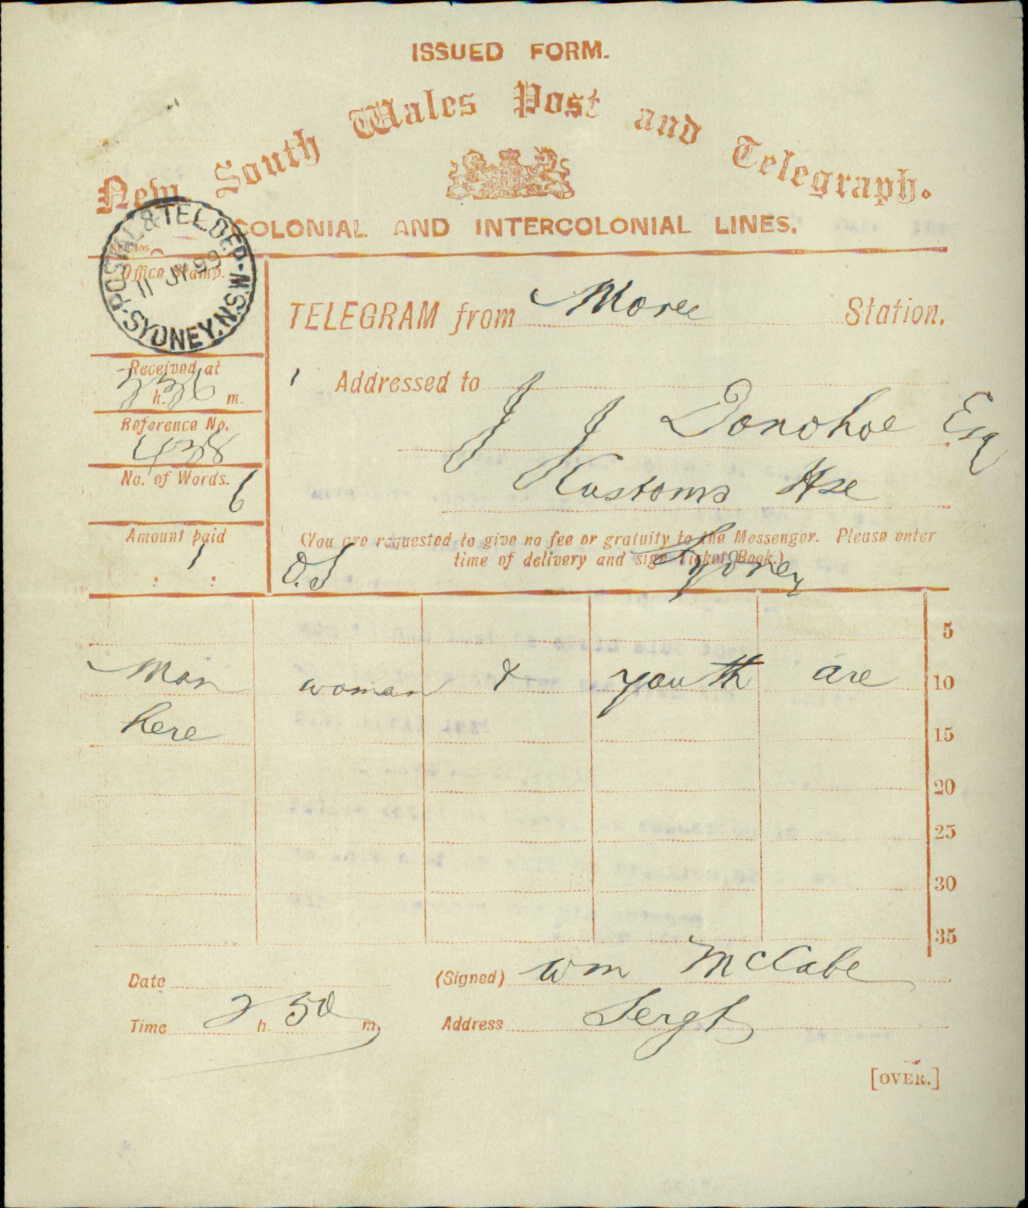 ISSUED FORM.
New South Wales Post and Telegraph.
COLONIAL AND INTERCOLONIAL LINES.
POSTAL & TEL. DEP. N.S.W.
11 JY 99
SYDNEY. N.S.W
Office Stamp.
TELEGRAM from Moree Station.
Received at
h. m.
Addressed to
J J Donohoe Esq
Reference No.
438
Kustoms Hse
No. of Words.
6
Sydney
Amount paid
1
: :
(You are requested to give no fee or gratuity to the Messenger. Please enter
time of delivery and sign Ticket Book.)
O.S
5
Man woman & youth are 10
here 15
20
25
30
35
Date (Signed) Wm McCabe
Time 2 h. 50 m, Address Sergt
[OVER.]